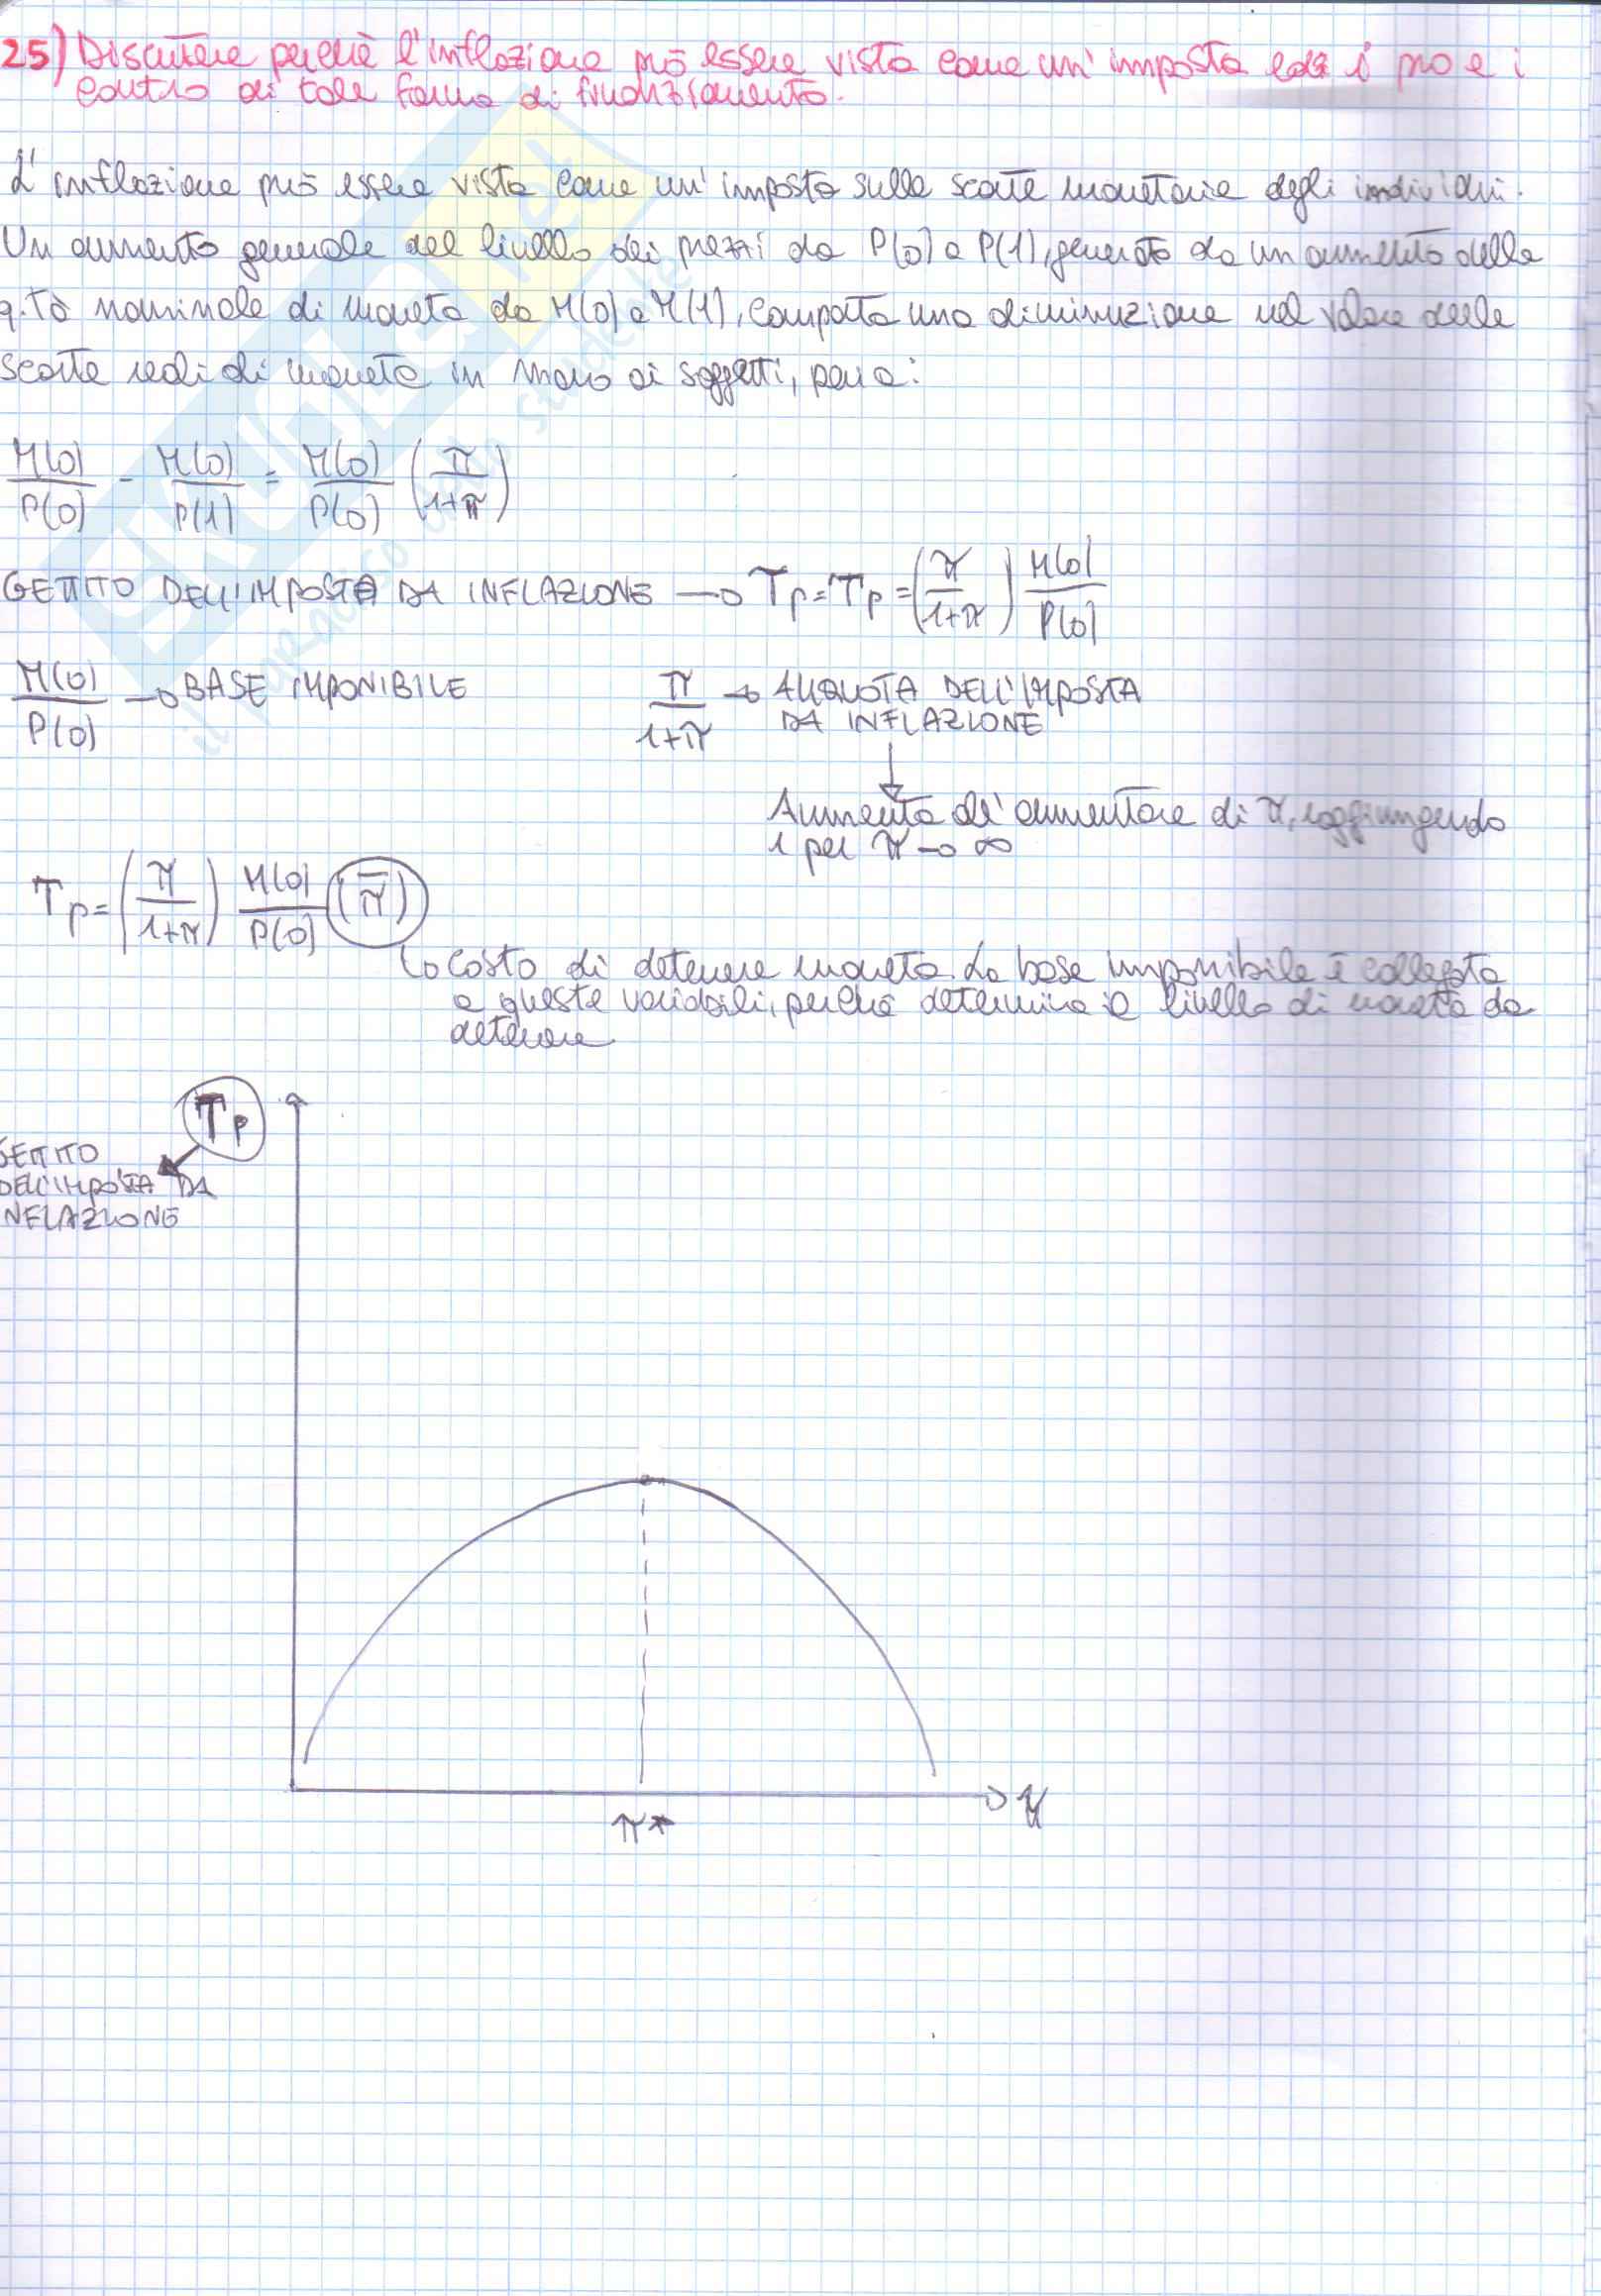 25) Discutere perchè l'inflazione può essere vista come un'imposta ed i pro e i
contro di tale forma di finanziamento.
L'inflazione può essere vista come un'imposta sulle scorte monetarie degli individui.
Un aumento generale del livello dei prezzi da P(0) a P(1), generato da un aumento della
q.tà nominale di moneta da M(0) a M(1), comporta una diminuzione nel valore delle
scorte reali di moneta in mano ai soggetti, pari a:
M(0)/P(0) - M(0)/P(1) = M(0)/P(0) (π/1+π)
GETTITO DELL'IMPOSTA DA INFLAZIONE → Tp = Tp = (π/1+π) M(0)/P(0)
M(0)/P(0) → BASE IMPONIBILE π/1+π → ALIQUOTA DELL'IMPOSTA
DA INFLAZIONE
Aumenta all'aumentare di π, raggiungendo
1 per π → ∞
Tp = (π/1+π) M(0)/P(0) (π̅)
↳ Costo di detenere moneta. La base imponibile è collegata
a queste variabili, perchè determina il livello di moneta da
detenere
Tp
GETTITO
DELL'IMPOSTA DA
INFLAZIONE
π
π*
SKUOLA.net
il paradiso dello studente